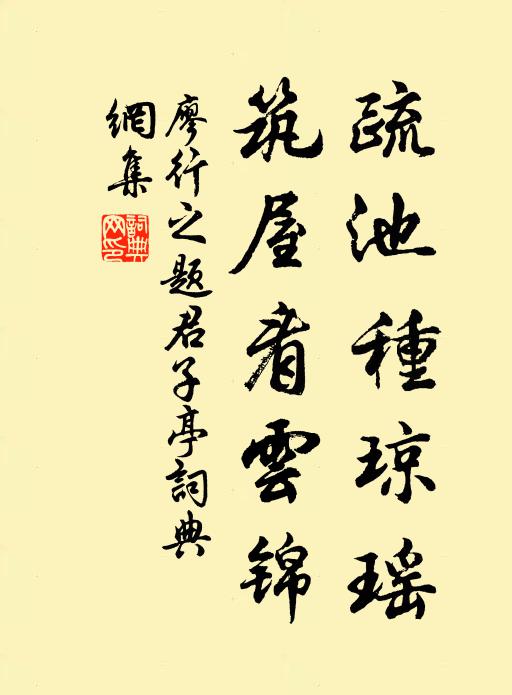 疏池種琼瑶
筑屋看雲锦
廖行之題君子亭詞典
網集
詞典網印